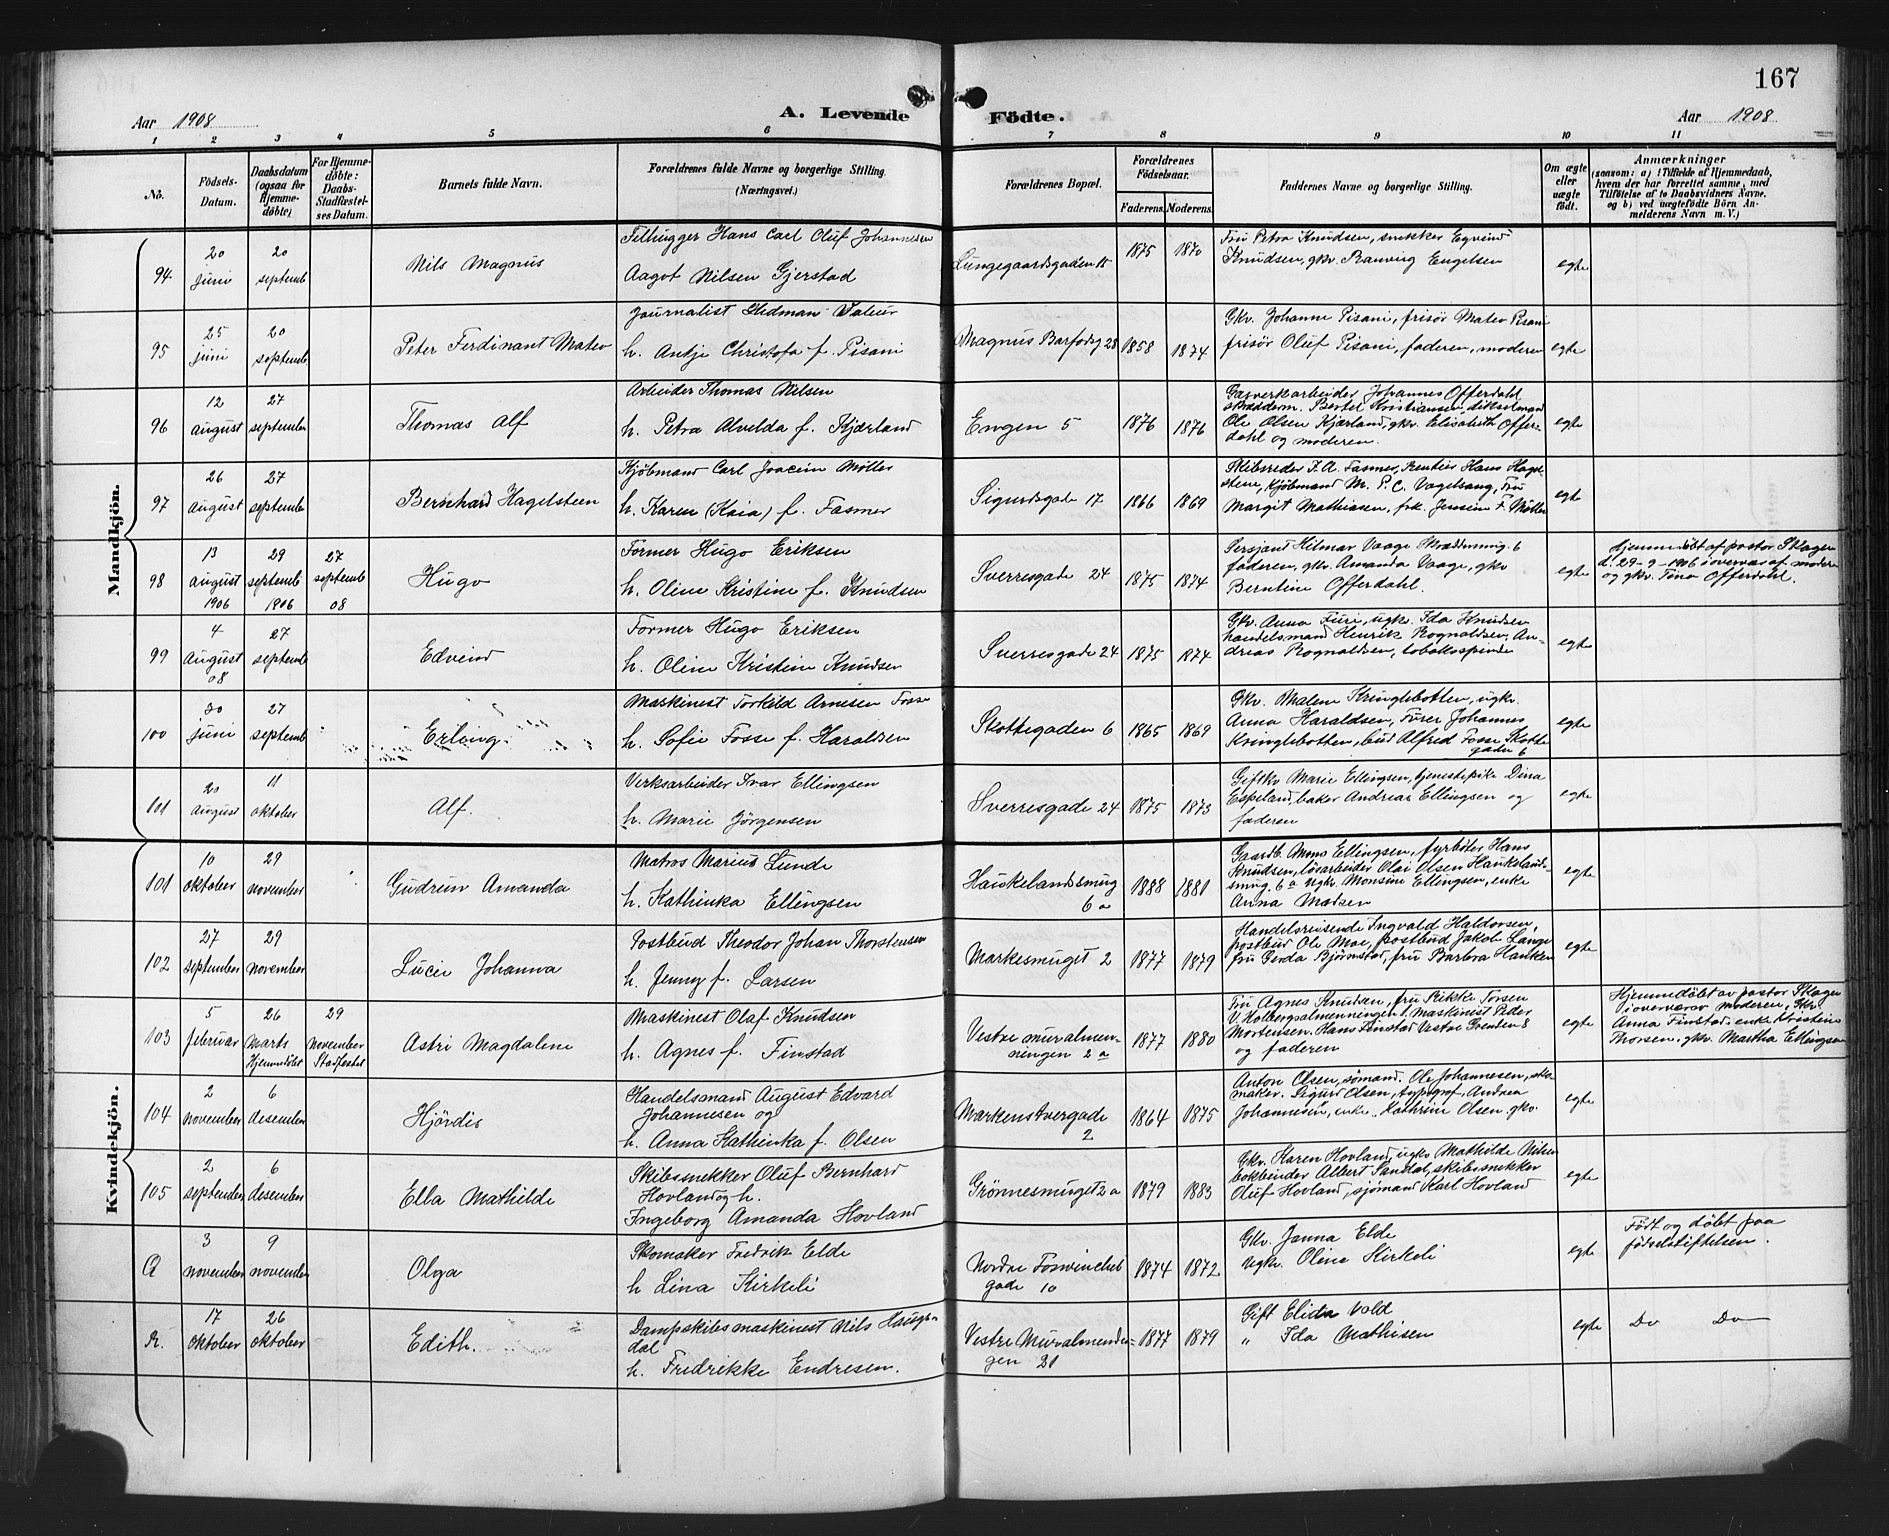 167
Aar 1908 A. Levende Födte. Aar 1908
1 2 3 4 5 6 7 8 9 10 11
No.
Födsels-
Datum.
Daabsdatum
(ogsaa for
Hjemme-
döbte)
For Hjemme-
döbte:
Daabs-
Stadfæstel-
ses Datum.
Barnets fulde Navn.
Forældrenes fulde Navne og borgerlige Stilling.
(Næringsvei.)
Forældrenes Bopæl.
Forældrenes
Födselsaar.
Faderens. Moderens.
Faddernes Navne og borgerlige Stilling.
Om ægte
eller
uægte
födt.
Anmærkninger
(saasom: a) i Tilfælde af Hjemmedaab,
hvem der har forrettet samme, med
Tilföielse af to Daabsvidners Navne.
og b) ved uægtefödte Börn An-
melderens Navn m. V.)
Mandkjön.
94
20
juni
20
septemb
Nils Magnus
Filhugger Hans Carl Oluf Johannesen
Aagot Nilsen Gjerstad
Lungegaardsgaden 15
1875 1870
Fru Petra Knudsen, snekker Eyvind
Knudsen, gkv. Ranveig Engelsen
egte
95
25
juni
20
septemb
Peter Ferdinant Mateo
Journalist Hedman Valeur
h. Antje Christofa f. Pisani
Magnus Barfodsg 28
1858 1874
Gkv. Johanne Pisani, frisör Mateo Pisani
frisör Oluf Pisani, faderen, moderen
egte
96
12
august
27
september
Thomas Alf
Arbeider Thomas Nilsen
h. Petra Alvilda f. Kjærland
Engen 5
1876 1876
Gasverkarbeider Johannes Offerdahl
Bertel Kristiansen
Ole Olsen Kjærland, gkv. Elisabeth Offer-
dahl og moderen.
egte
97
26
august
27
septembe
Bernhard Hagelsteen
Kjöbmand Carl Joacim Möller
h. Karen (Kaia) f. Fasmer
Sigurdsgade 17
1866 1869
Skibsreder F. A. Fasmer, Rentier Hans Hagel-
steen, Kjöbmand M. P. C. Vogelsang, Fru
Margit Mathiasen, frk. Jensine F. Möller
egte
98
13
august
1906
29
septemb
1906
27
septemb
08
Hugo
Former Hugo Eriksen
h. Oline Kristine f. Knudsen
Sverresgade 24
1875 1874
Persjant Hilmar Vaage Skreddersmug. 6
faderen, gkv. Amanda Vaage, gkv
Berntine Offerdahl.
egte
Hjemmedöbt af pastor Skagen
d. 29-9-1906 i overvær af moderen
og gkv. Tina Offerdahl.
99
4
August
08
27
septembe
Edveind
Former Hugo Eriksen
h. Oline Kristine Knudsen
Sverresgade 24
1875 1874
Gkv. Anna Furi, ugkv. Ida Knudsen
handelsmand Henrik Rognaldsen, An-
dreas Rognaldsen, tobaksspinder
egte
100
30
juni
27
septemb
Erling.
Maskinest Torkild Arnesen Fosse
h. Sofie Fosse f. Haraldsen
Skottegaden 6
1865 1869
Gkv. Malene Kringlebotten, ugkv.
Anna Haraldsen, Fører Johannes
Kringlebotten, bud Alfred Fosse Skotte
gaden 6
egte
101
20
August
11
oktober
Alf.
Verksarbeider Ivar Ellingsen
h. Marie Jörgensen
Sverresgade 24
1875 1873
Giftkv Marie Ellingsen, tjenestepike Dina
Espeland, baker Andreas Ellingsen og
faderen
egte
Kvindekjön.
101
10
oktober
29
november
Gudrun Amanda
Matros Marius Lunde
h. Kathinka Ellingsen
Haukelandsmug
6 a
1888 1881
Gaardb. Amos Ellingsen, fyrböter Hans
Knudsen, lösarbeider Olai Olsen Haukeland-
smug. 6 a ugkv. Monsine Ellingsen, enke
Anna Madsen
egte
102
27
september
29
november
Lucie Johanna
Postbud Theodor Johan Thorstensen
h. Jenny f. Larsen
Markesmuget 2
1877 1879
Handelsreisende Ingvald Haldorsen,
postbud Ole Moe, postbud Jakob Lange
fru Gerda Björnstad, fru Barbra Hauken
egte
103
5
februar
26
Marts
Hjemmedöbt
29
november
Stadfestet
Astri Magdalene
Maskinest Olaf Knudsen
h. Agnes f. Finstad
Vestre muralmen-
ningen 2 a
1877 1880
Fru Agnes Knudsen, fru Rikke Torsen
V. Holbergsalmenningen 1. maskinist Peder
Mortensen. Hans Finstad Vestre 8
og faderen
egte
Hjemmedöbt av pastor Skagen
i overvær av moderen, Gkv.
Anna Finstad, enke Kristine
Thorsen, gkv. Martha Ellingsen
104
2
november
6
desember
Hjördis
Handelsmand August Edvard
Johannesen og
h. Anna Kathinka f. Olsen
Markens tvergade
2
1864 1875
Anton Olsen, sömand. Ole Johannesen, sko-
maker. Sigurd Olsen, typograf, Andrea
Johannesen, enke. Kathrine Olsen gkv.
egte
105
2
september
6
desember
Ella Mathilde
Skibssnekker Oluf Bernhard
Hovland og h.
Ingeborg Amanda Hovland
Grönnesmuget 2 a
1879 1883
Gkv. Karen Hovland, ugkv Mathilde Nilsen
bokbinder Albert Sandal, skibssnekker
Oluf Hovland, sjömand Karl Hovland
egte
Q
3
november
9
november
Olga
Skomaker Fredrik Elde
h Lina Kirkeli
Nordre Foswinckel
gade 10
1874 1872
Gkv. Janna Elde
Ugkv. Oline Kirkeli
egte
Födt og döbt paa
födselstiftelsen.
R.
17
oktober
26
oktober
Edith.
Dampskibsmaskinest Nils Haug-
dal
h. Fredrikke Endresen.
Vestre Muralmendin-
gen 21
1877 1879
Gift Elida Vold
" Ida Mathisen
egte
Do Do